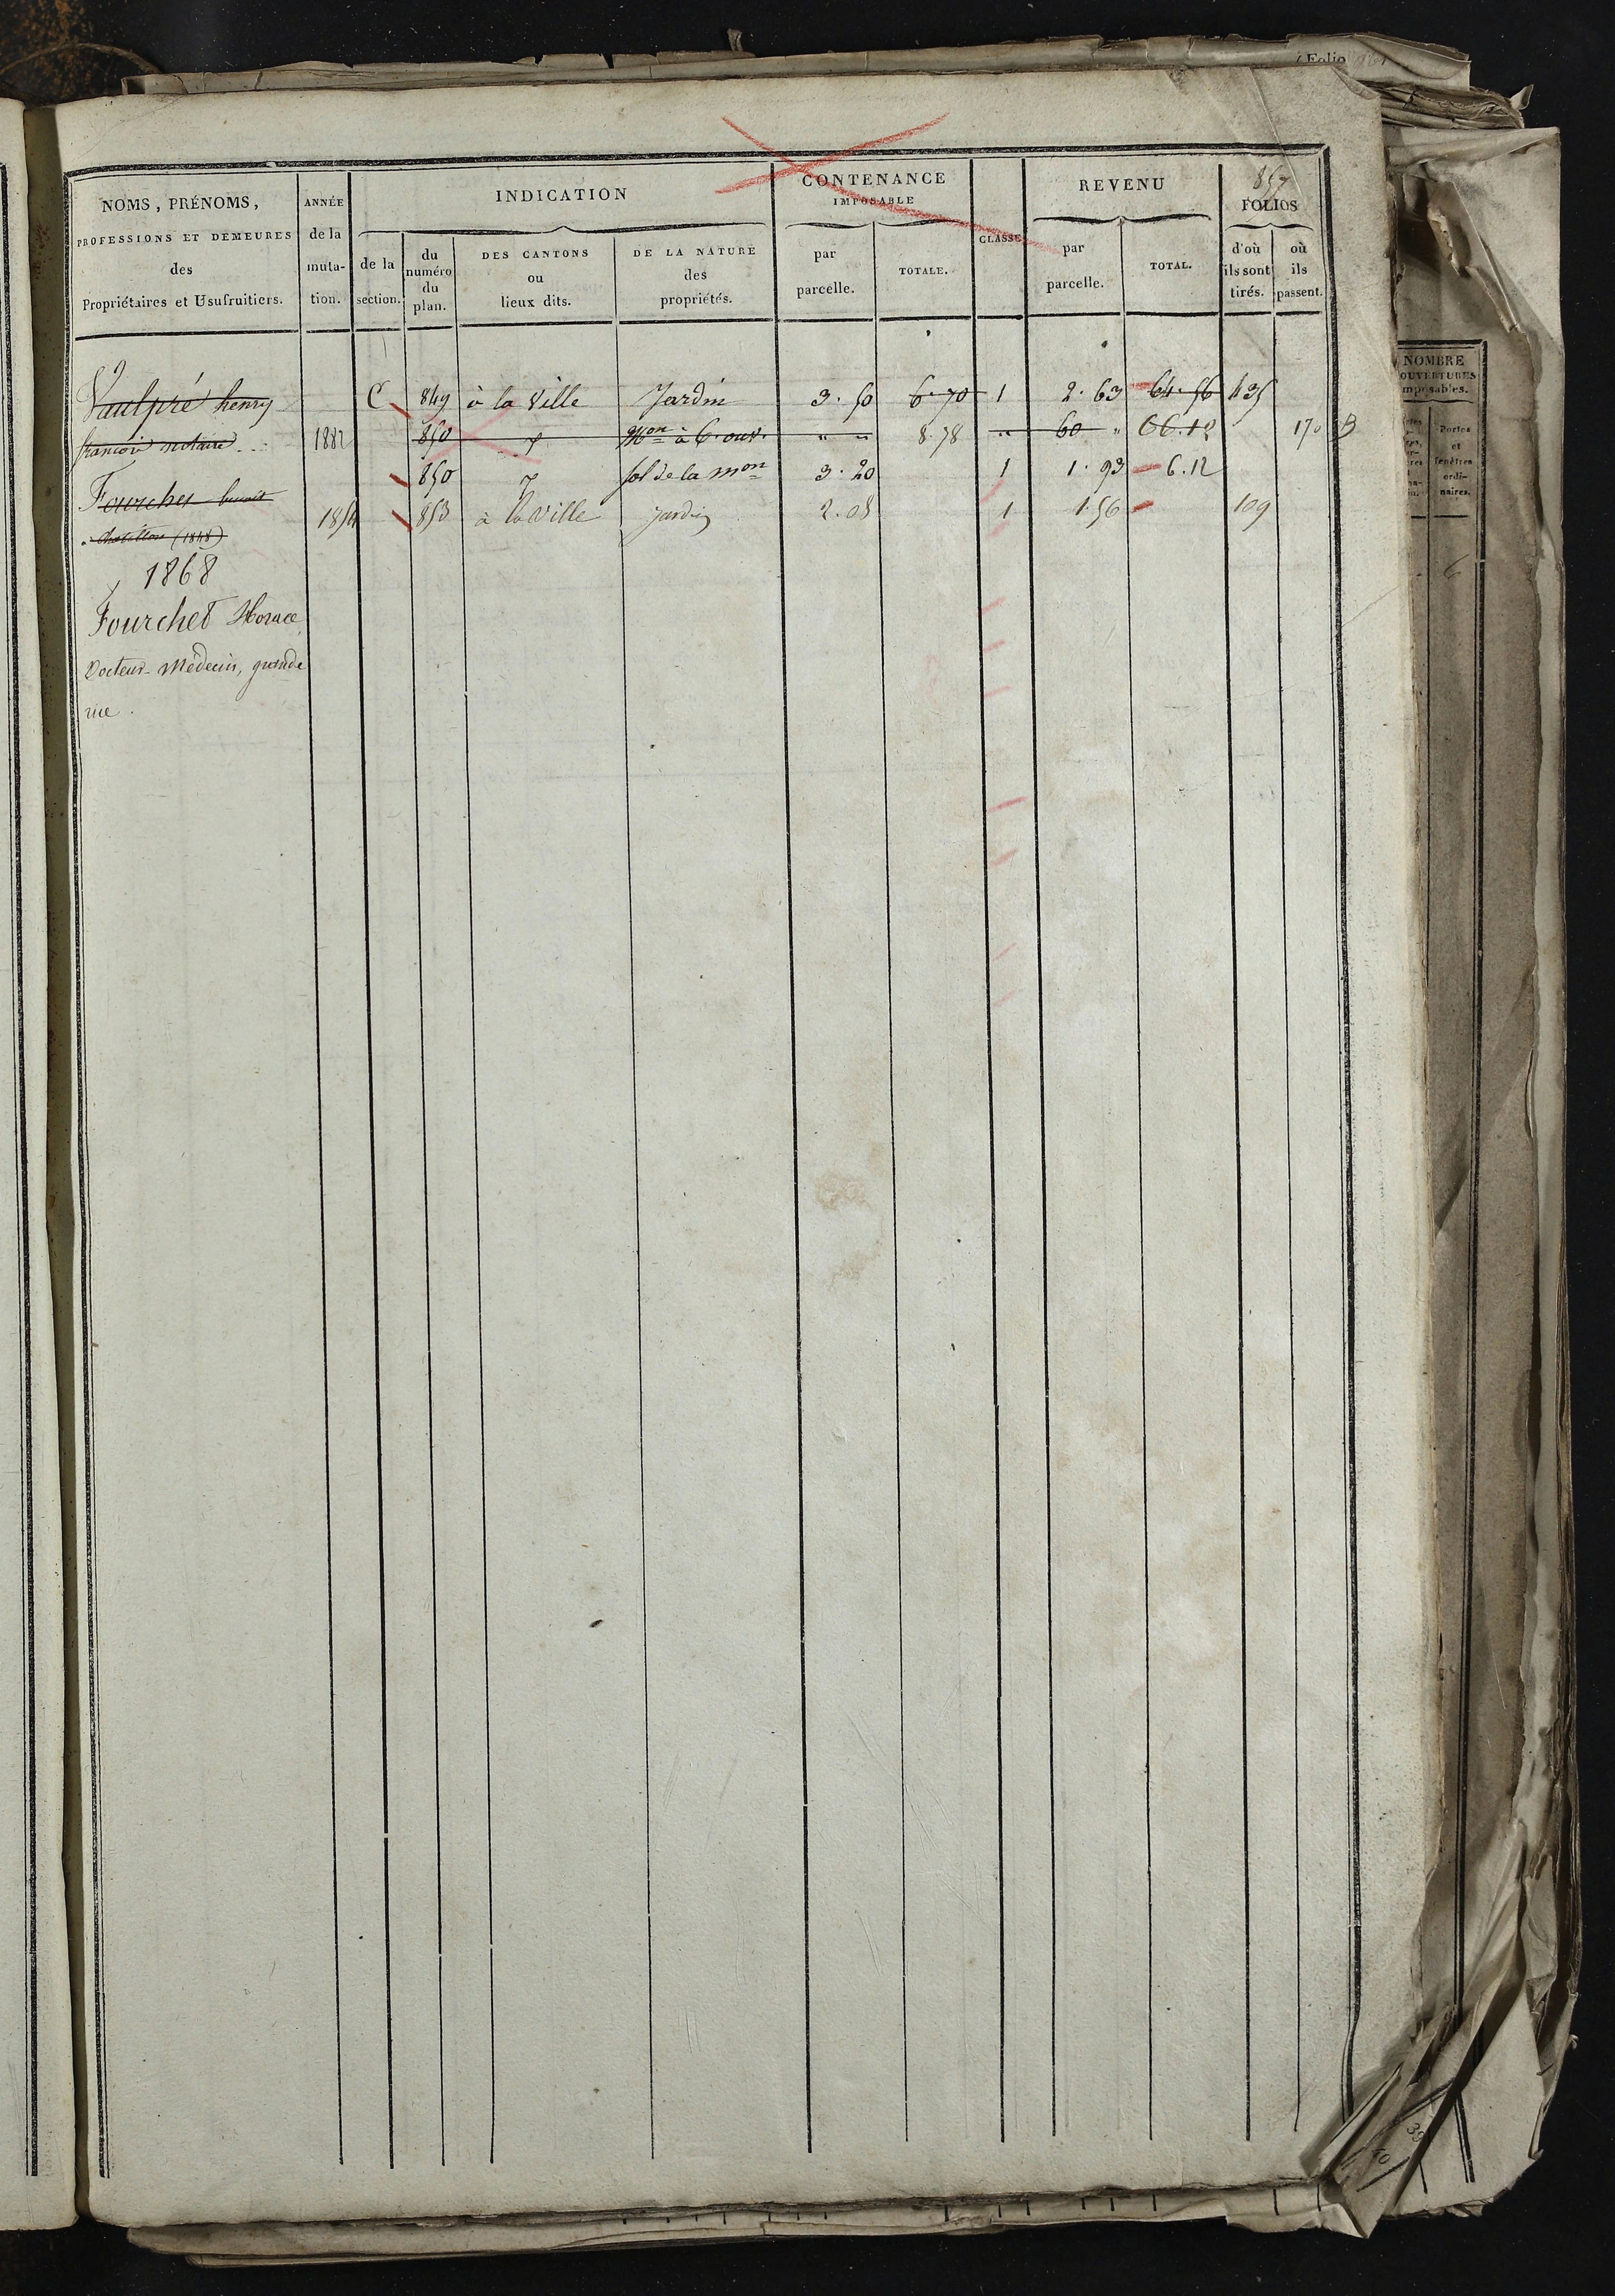 Folio
857
NOMS, PRÉNOMS,
PROFESSIONS ET DEMEURES
des
Propriétaires et Usufruitiers.
ANNÉE
de la
muta-
tion.
INDICATION
de la
section.
du
numéro
du
plan.
DES CANTONS
ou
lieux dits.
DE LA NATURE
des
propriétés.
CONTENANCE
IMPOSABLE
par
parcelle.
TOTALE.
CLASSE
REVENU
par
parcelle.
TOTAL.
FOLIOS
d'où
ils sont
tirés.
où
ils
passent.
Vaulpré henry C 849 à la Ville Jardin 3.50 6.70 1 2.63 64.56 435
françois notaire 1882 850 Mon à 6 ouv. " " 8.78 " 60 " 66.12 170 B
850 sol de la mon 3.20 1 1.93 6.12
Fourchet
1854 853 à la Ville jardin 2.08 1 1.56 109
(1848)
1868
Fourchet Horace
Docteur-Médecin, grande
rue.
NOMBRE
OUVERTURES
imposables.
Portes
et
fenêtres
ordi-
naires.
6
39
40